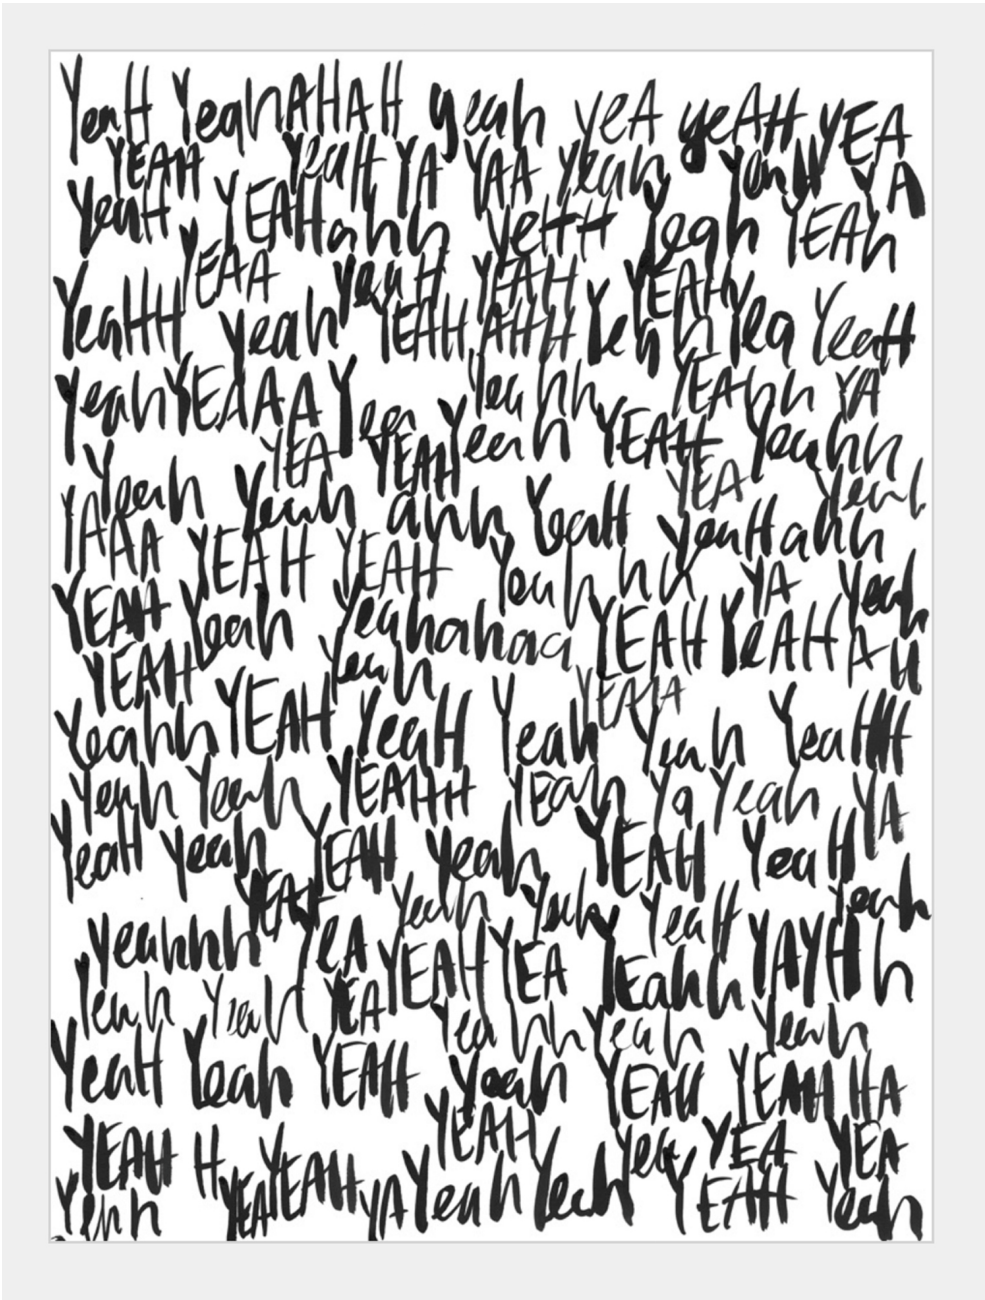 YeaH YeahAHAH yeah yeA yeAH YEA
YEAH YeaH YA YAA Yeah YeaH YA
YeaH YEAHahh YeHH Yeah YEAh
YEAA YeaH YEAH YEAH
YeaHH Yeah YEAHAHH Yeah Yea YeaH
Yeah YEAAA Yea Yeahh YEAhh YA
YEA YEAH Yeah YEAH Yeahh
Yeah Yeah ahh YeaH YEA Yeah
YAAA YEAH YEAH Yeahhh YeaHahh YA Yeah
YEAH Yeah Yeahahaa YEAH YeAHAH
YEAH Yeah
Yeahh YEAH YeaH Yeah Yeah YeaHH
Yeah Yeah YEAHH YEah Ya Yeah YA
YeaH Yeah YEAH Yeah YEAH YeaH
YEAH Yeah Yeah YeaH Yeah
Yeahhh YeA YEAH YEA YEahh YAYHh
Yeah Yeah YEA Yeahh Yeah Yeah
YeaH Yeah YEAH Yeah YEAH YEAHHA
YEAH H YEAH Yea YEA YEA
Yeah YEA YEAH YA Yeah Yeah YEAH Yeah